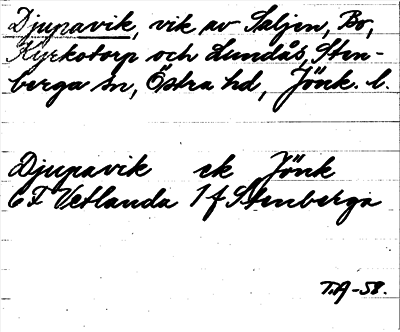 Djupavik, vik av Saljen, Bo,
Kyrkotorp och Lundås, Sten-
berga sn, Östra hd, Jönk. l.
Djupavik ek Jönk
6F Vetlanda 1 f Stenberga
T.A -58.